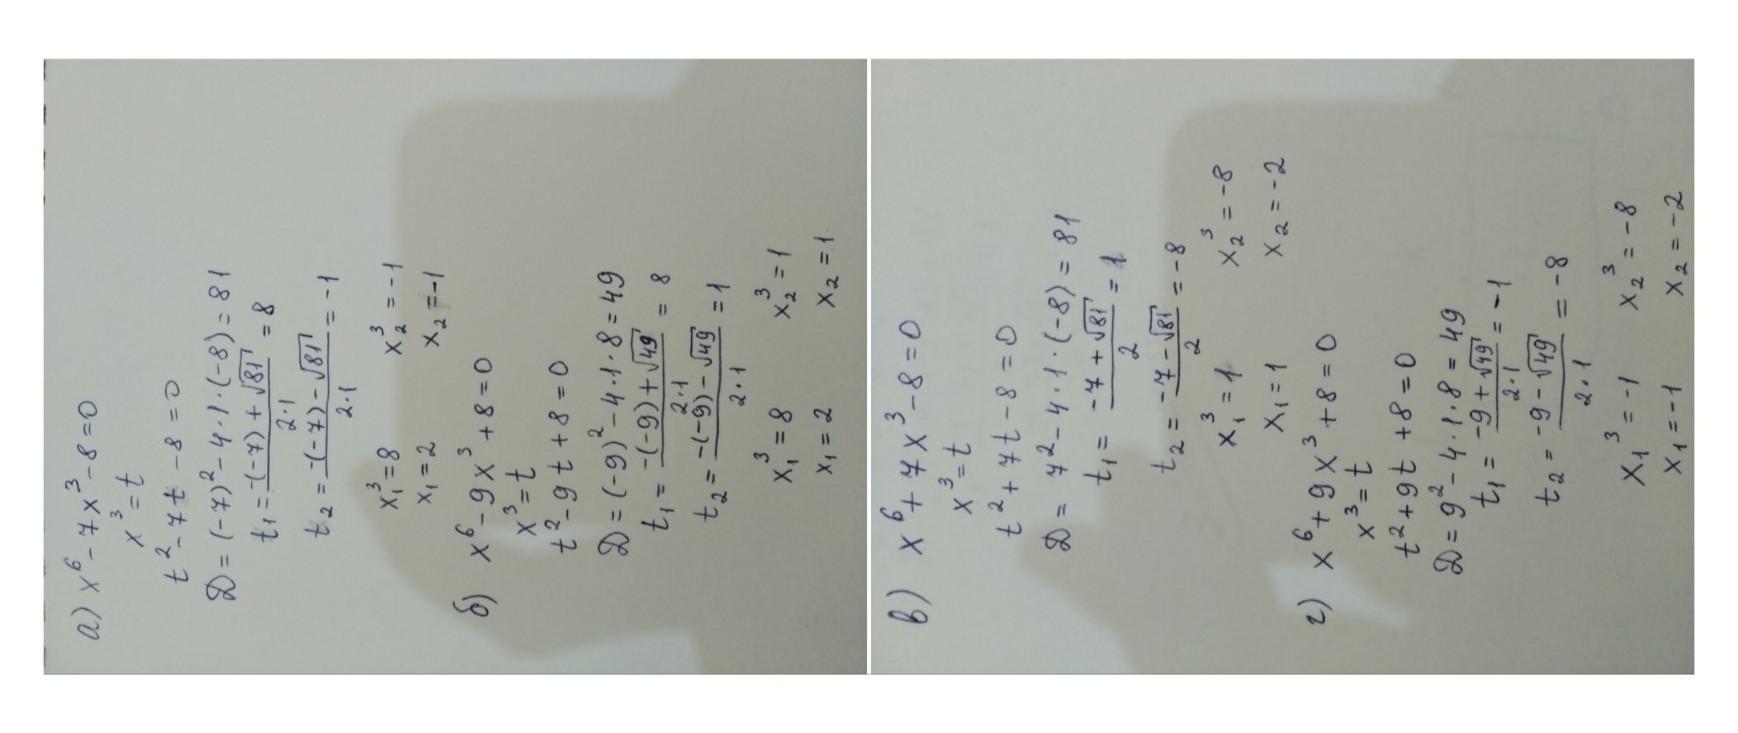 а) x⁶ - 7x³ - 8 = 0
x³ = t
t² - 7t - 8 = 0
D = (-7)² - 4·1·(-8) = 81
t₁ = (-(-7) + √81) / (2·1) = 8
t₂ = (-(-7) - √81) / (2·1) = -1
x₁³ = 8 x₂³ = -1
x₁ = 2 x₂ = -1
б) x⁶ - 9x³ + 8 = 0
x³ = t
t² - 9t + 8 = 0
D = (-9)² - 4·1·8 = 49
t₁ = (-(-9) + √49) / (2·1) = 8
t₂ = (-(-9) - √49) / (2·1) = 1
x₁³ = 8 x₂³ = 1
x₁ = 2 x₂ = 1
в) x⁶ + 7x³ - 8 = 0
x³ = t
t² + 7t - 8 = 0
D = 7² - 4·1·(-8) = 81
t₁ = (-7 + √81) / 2 = 1
t₂ = (-7 - √81) / 2 = -8
x₁³ = 1 x₂³ = -8
x₁ = 1 x₂ = -2
г) x⁶ + 9x³ + 8 = 0
x³ = t
t² + 9t + 8 = 0
D = 9² - 4·1·8 = 49
t₁ = (-9 + √49) / (2·1) = -1
t₂ = (-9 - √49) / (2·1) = -8
x₁³ = -1 x₂³ = -8
x₁ = -1 x₂ = -2